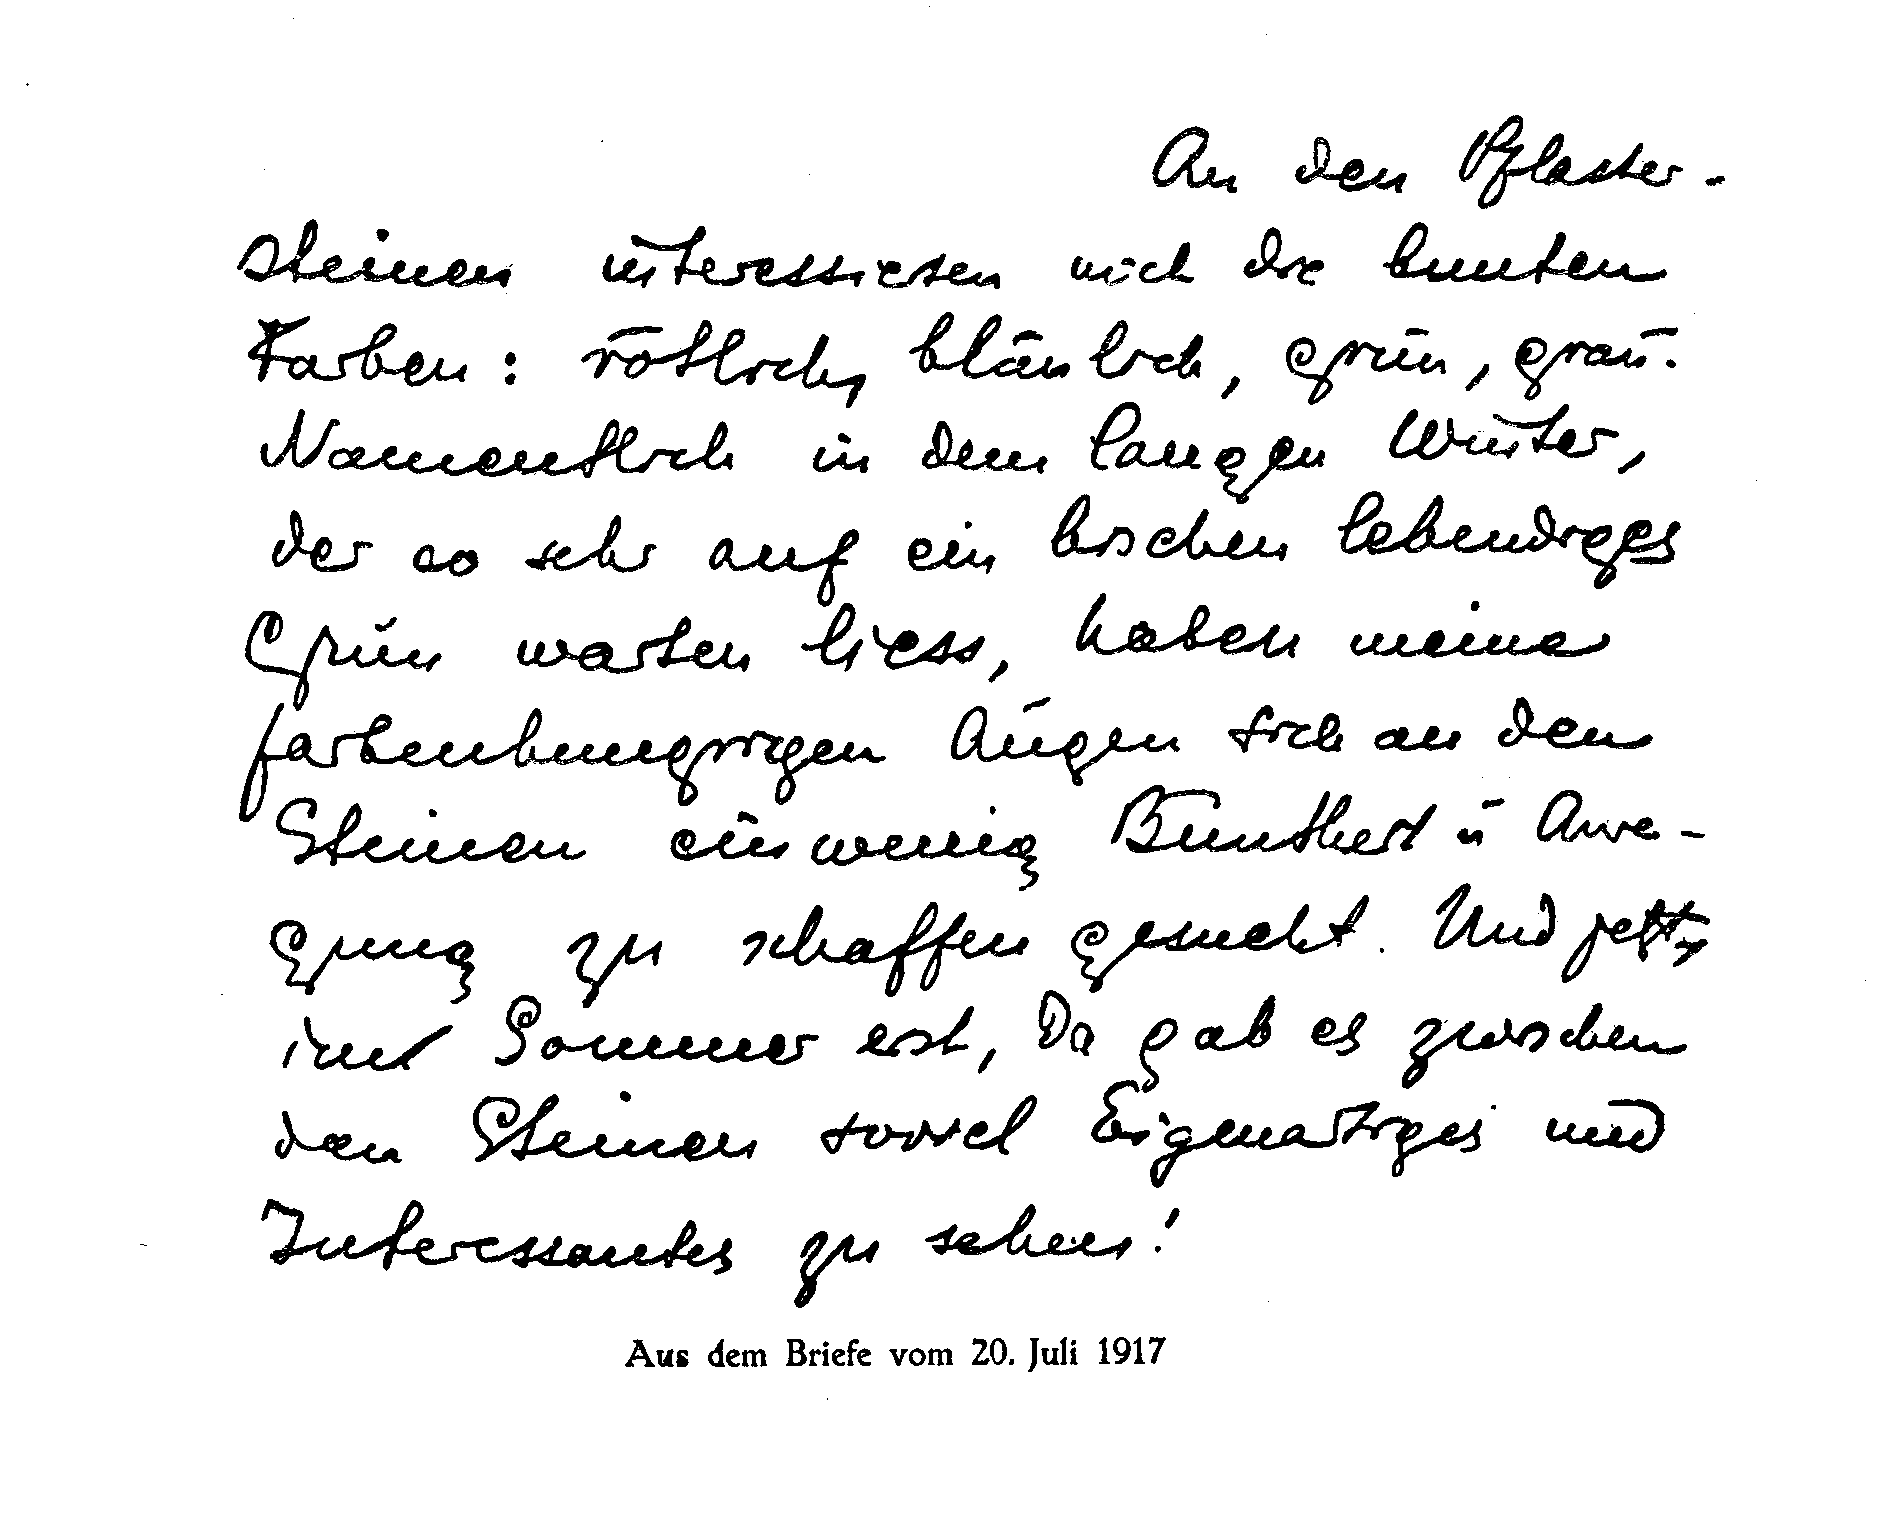 An den Pflaster-
steinen interessieren mich die bunten
Farben: rötlich, bläulich, grün, grau.
Namentlich in dem langen Winter,
der so sehr auf ein bischen lebendiges
Grün warten liess, haben meine
farbenhungrigen Augen sich an den
Steinen ein wenig Buntheit u Anre-
gung zu schaffen gesucht. Und jetzt,
im Sommer erst, da gab es zwischen
den Steinen soviel Eigenartiges und
Interessantes zu sehen!
Aus dem Briefe vom 20. Juli 1917